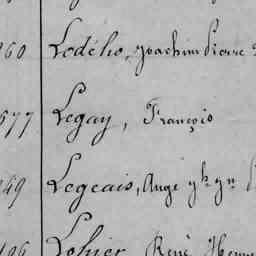 860 Lodého, Joachim Pierre
577 Legay, François
Legeais, Ange
Lohier, René